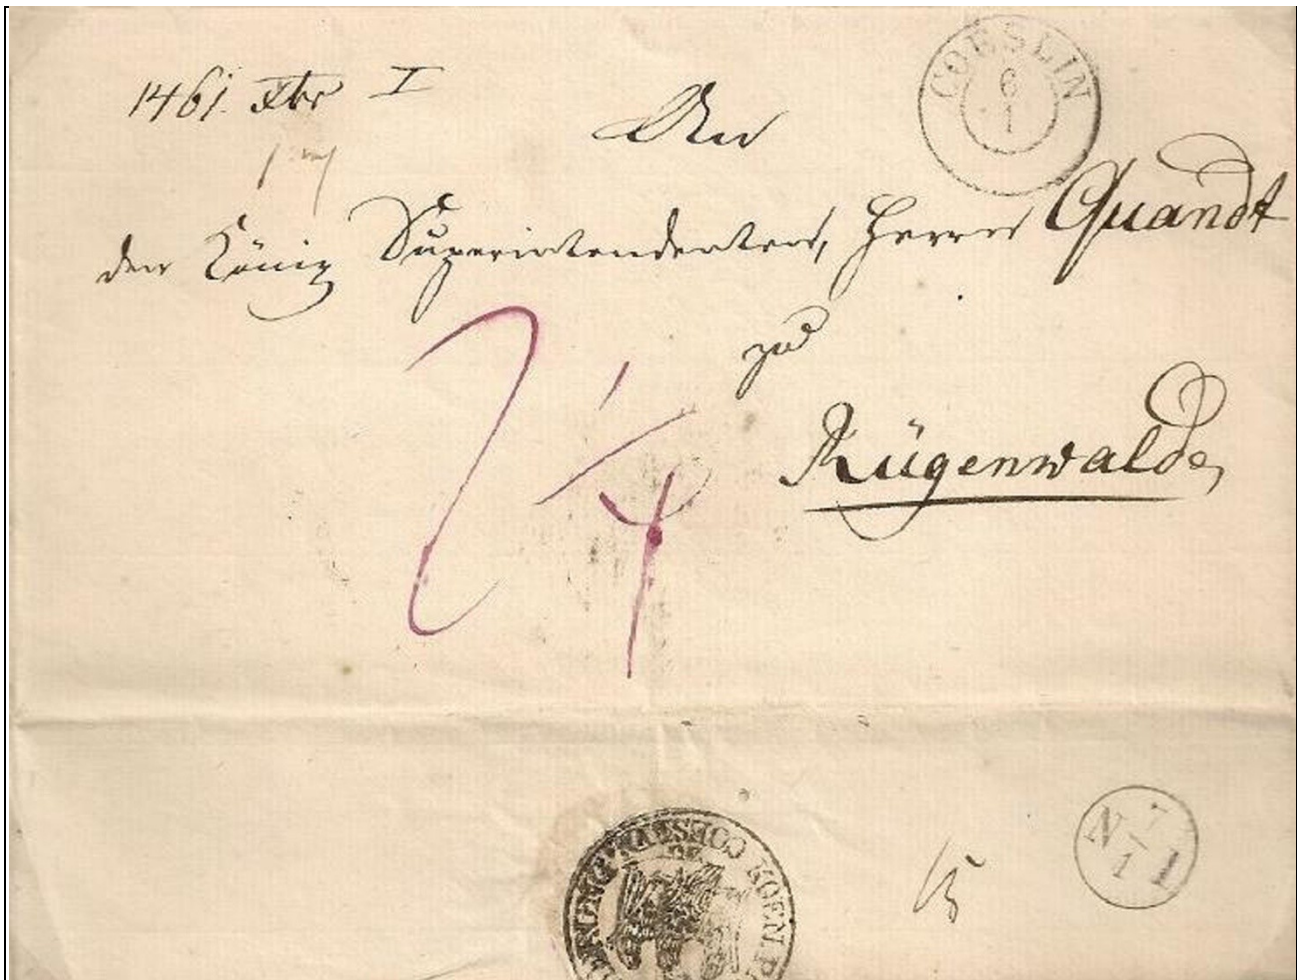 1461. I
COESLIN
6
1
An
den König Superintendenten, Herrn Quandt
zu
Rügenwalde,
2 1/4
7
N 1
1
COESLIN KOEN